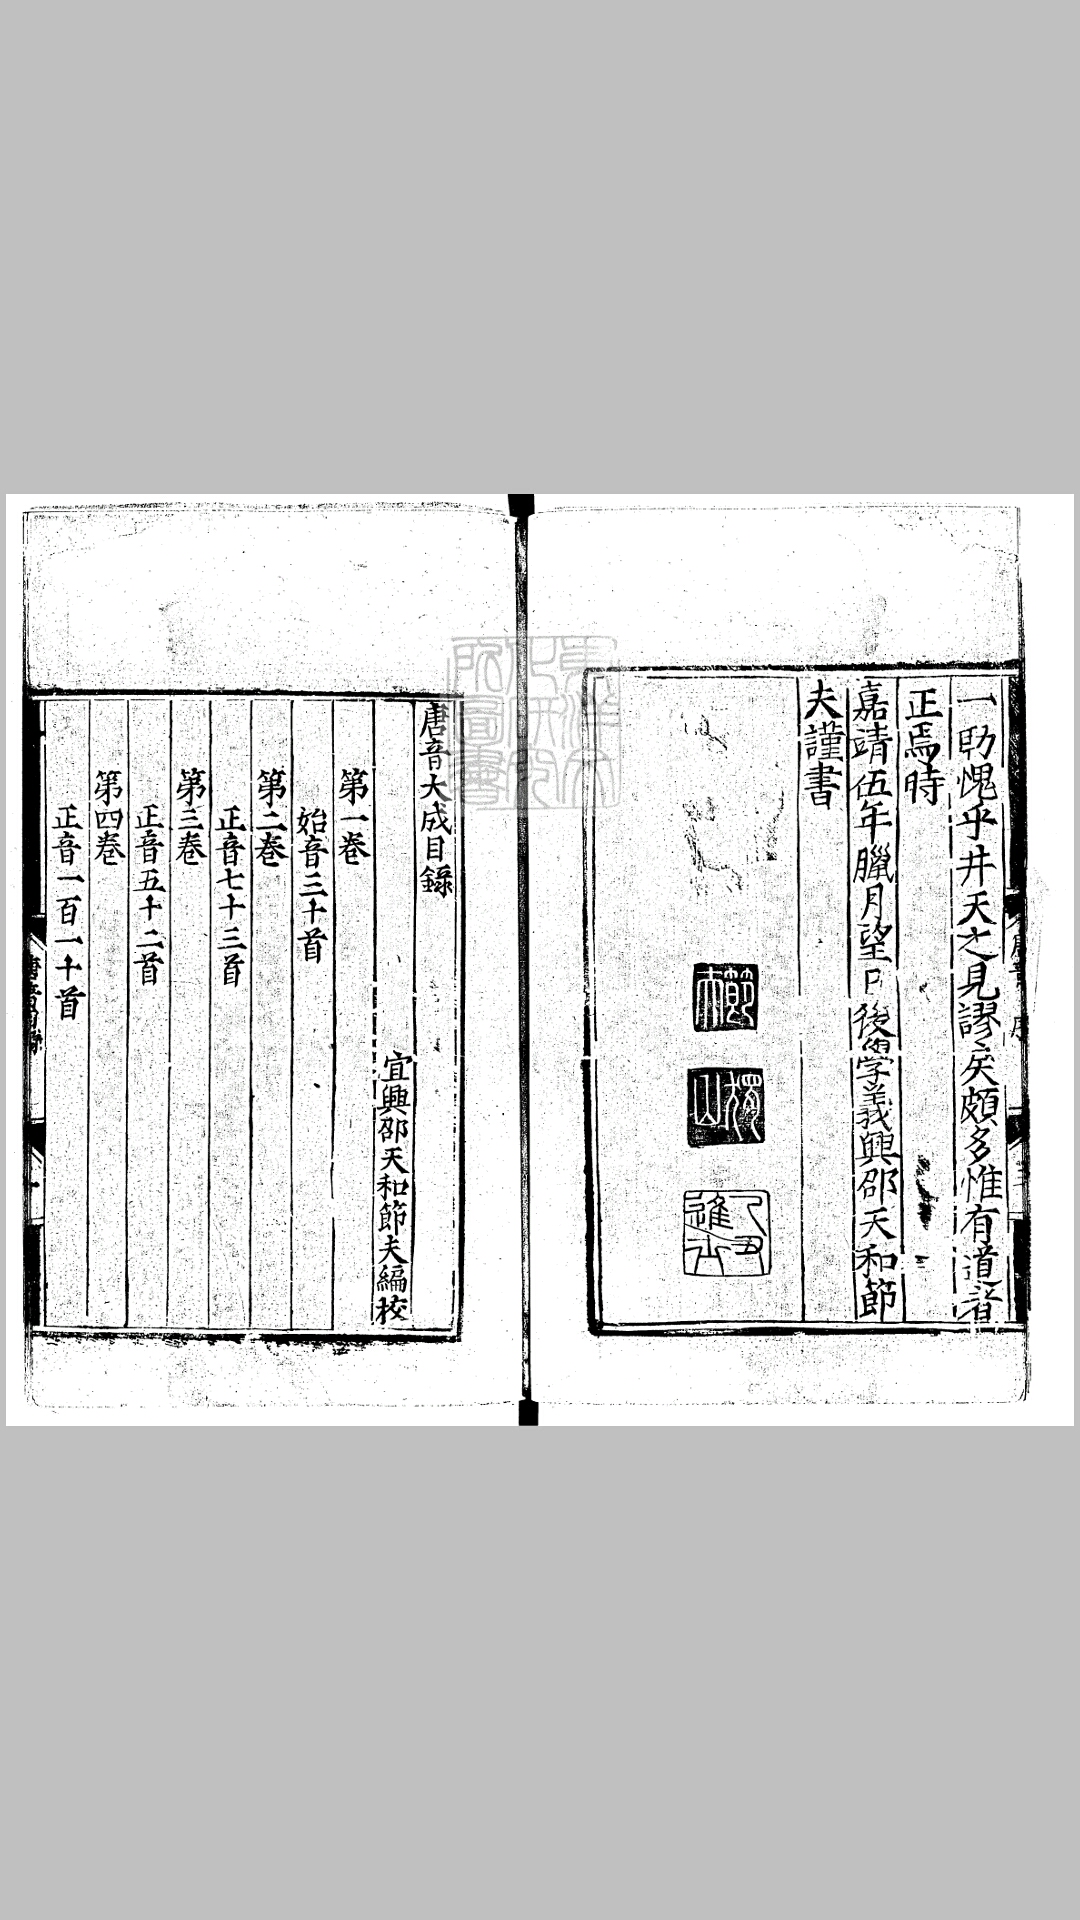 一助愧乎井天之見謬矣頗多惟有道者
正焉時
嘉靖伍年臘月望日後學義興邵天和節
夫謹書
節夫
唐音大成目錄
宜興邵天和節夫編校
第一卷
始音三十首
第二卷
正音七十三首
第三卷
正音五十二首
第四卷
正音一百一十首